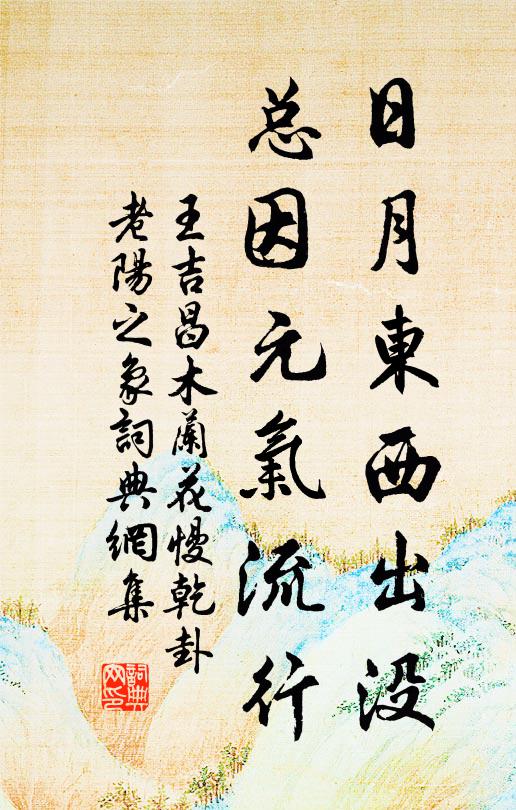 日月東西出没
总因元氣流行
王吉昌木蘭花慢乾卦
老陽之象詞典網集
詞典网印